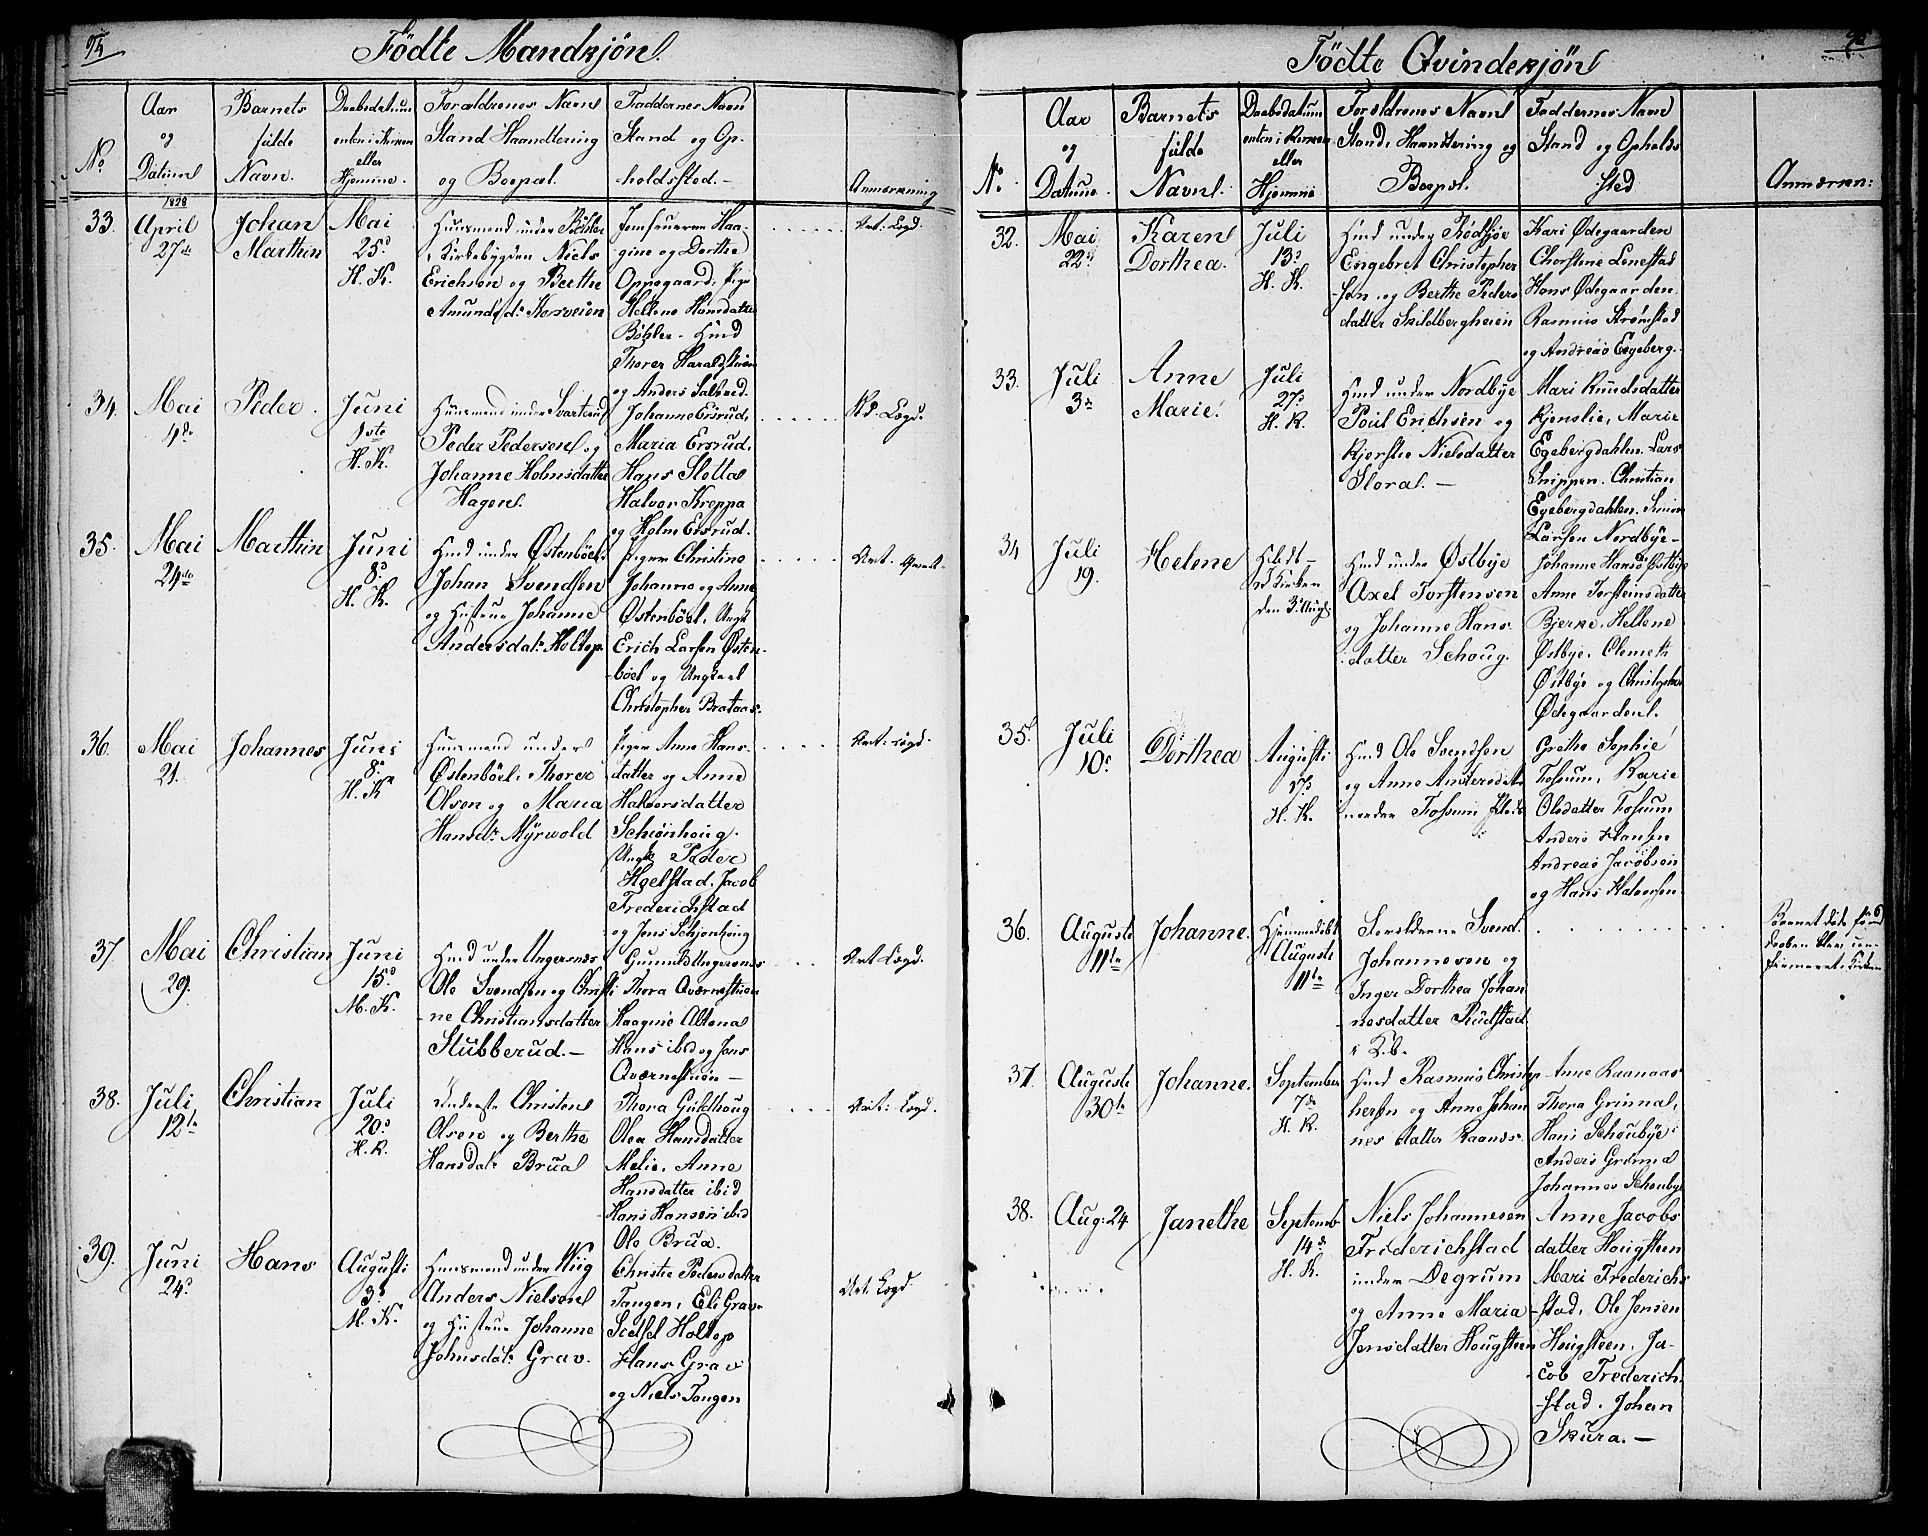 Födte Mandkjön.
No
Aar
og
Datum
Barnets
fulde
Navn.
Daabsdatum
enten i Kirken
eller
Hjemme.
Foraldrenes Navn
Stand Haandtering
og Boepæl.
Faddernes Navn
Stand og Op-
holdssted.-
Anmærkning
33.
1828
April
27de
Johan
Marthin
Mai
25d
H. K.
Huusmand under Böhler
i Kirkebygden Niels
Erichsen og Berthe
Amundsdr Korsveien
Jomfruerne Haa-
gine og Dorthe
Oppegaard, Pige
Hellene Hansdatter
Böhler. Huusmd
Thorer Haraldstuen
og Anders
34.
Mai
4de
Peder.
Juni
1ste
H. K.
Huusmand under Svartrud
Peder Pedersen og
Johanne Holmsdatter
Hagen.
Johanne Ersrud,
Maria Ersrud,
Hans Sletta
Halvor Kreppa
og Holm Ersrud.
35.
Mai
24de
Marthin
Juni
8d
H. K.
Hmd under Östenböel
Johan Svendsen
og Hustrue Johanne
Andersdatr Holtop
Piger Christine
Johanne og Anne
Östenböel, Ungk
Erich Larsen Östen-
böel og Ungkarl
Christopher Brataas.
36.
Mai
21.
Johannes
Juni
8d
H. K
Huusmand under
Östenböel, Thorer
Olsen og Maria
Hansdr Myrwold
Pigen Anne Hans-
datter og Anne
Halvorsdatter
Schiönhoug.
Ungk Peder
Hgelstad, Jacob
Frederichstad
og Jens Schjonhoug
37.
Mai
29.
Christian
Juni
15d
M. K.
Hmd under Ungersnes
Ole Svendsen og Christi-
ne Christiansdatter
Stubberud.-
Gunnild Ungersnes
Thora Qværnstuen
Haagine Altena
Hans ibid og Jens
Qværnstuen-
38.
Juli
12te
Christian
Juli
20d
H. K.
Christen
Olsen og Berthe
Hansdatr Brua
Thora Guldhoug
Olea Hansdatter
Melie, Anne
Hansdatter ibid
Hans Hansen ibid
Ole Brua.
39.
Juni
24d
Hans
Augusti
3d
M. K.
Huusmand under Wiig
Anders Nielsen
og Hustrue Johanne
Johnsdatr Grav.
Christie Pedersdatter
Tangen, Eli Grav
Hans Grav
og Niels Tangen
Födte Qvindekjön
No
Aar
og
Datum
Barnets
fulde
Navn.
Daabsdatum
enten i Kirken
eller
Hjemme
Forældrenes Navn
Stand, Haandtering og
Boepæl.
Faddernes Navn
Stand og Opholds
sted
Anmærkn:
32.
Mai
22d
Karen
Dorthea.
Juli
13d
H. K.
Hmd under Rödsjöe
Engebret Christopher
sen og Berthe Peders
datter Skildbergheien
Kari Ödegaarden
Chorstine Lenestad
Hans Ödegaarden
Rasmus Strömstad
og Andreas Egeberg.
33.
Juli
3de
Anne
Marie.
Juli
27d
H. K.
Hmd under Nordbye
Poul Erichsen og
Kjerstie Nielsdatter
Storal.-
Mari Knudsdatter
Kjenslie, Marie
Egebergdahlen. Lars
Snippen. Christian
Egebergdahlen. Simen
Larsen Nordbye-
34
Juli
19.
Helene
Hmd under Östbye
Axel Torstensen
og Johanne Hans
datter Schoug.
Johanne Hansd Östbye
Anne Torsteinsdatter
Bjerke. Hellene
Östbye. Clemeth
Östbye og Christopher
Ödegaarden.
35.
Juli
10d
Dorthea
Augusti
H. K.
Hmd Ole Svendsen
og Anne Andersdatter
nordre Fossum
Grethe Sophie
Fossum, Karie
Olsdatter Fossum
Anders Hansen
Andreas Jacobsen
og Hans Halvorsen
36.
Auguste
11te
Johanne.
Hjemmedöbt
Auguste
11te
Forældrene Svend
Johannesen og
Inger Dorthea Johan
nesdatter Rudstad
Barnet döde förend
Daaben blev con-
firmeret i Kirken
37.
Auguste
30te
Johanne.
September
7de
H. K.
Hmd Rasmus Christop
hersen og Anne Johan
nes datter Raanaas.
Anne Raanaas
Thora Grimma,
Hans Schoubye
Anders Grimma
Johannes Schoubye
38.
Aug: 24
Janethe
Septemb
14d
H. K.
Niels Johannesen
Friderichstad
under Degrum
og Anne Maria
Jensdatter Hougsteen
Anne Jacobs
datter Hougsteen
Mari Frederich
stad, Ole Jensen
Hougsteen, Ja-
cob Frederich-
stad. Johan
Skura.-